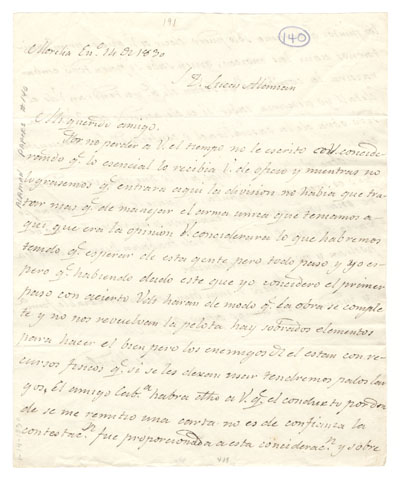 191
140
Morelia En.o 14 de 1830
D. Lucas Alaman
Mi querido amigo.
Por no perder a V. el tiempo no le escrito conside
rando q.e lo esencial lo recibia V. de oficio y mientras no
lograsemos q.e entrara aqui la division no habia que tra
tar mas q.e de manejar el arma unica que teniamos a
qui, que era la opinion V. considerara lo que habremos
temido q.e esperar de esta gente pero todo paso, y yo es
pero q.e habiendo dado este que yo considero el primer
paso con acierto Vds haran de modo q.e la obra se comple
te y no nos revuelvan la pelota hay sobrados elementos
para hacer el bien pero los enemigos de el estan con re
cursos fisicos q.e si se les dexan usar tendremos palos lar
gos, El amigo habra dho a V. q.e el conducto por don
de se me remitio una carta no es de confianza la
contestac.n fue proporcionada a esta considerac.n y sobre